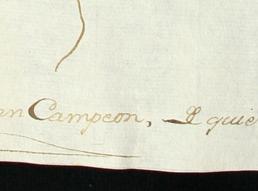 an Campeon, I quie